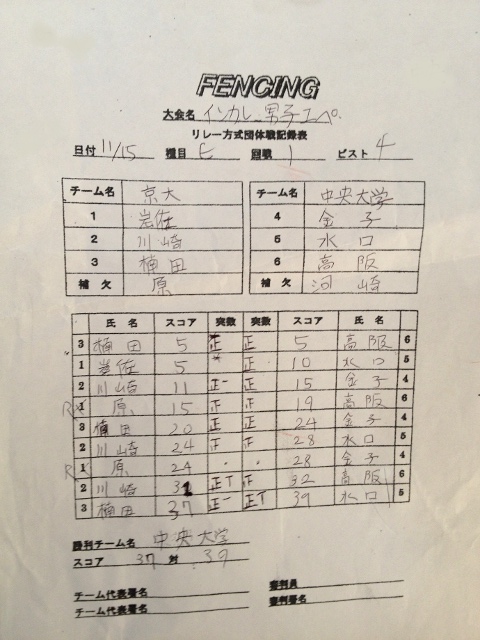 FENCING
大会名 インカレ 男子エペ
リレー方式団体戦記録表
日付 11/15 種目 E 回戦 1 ピスト 4
チーム名 京大 チーム名 中央大学
1 岩佐 4 金子
2 川崎 5 水口
3 植田 6 高阪
補欠 原 補欠 河崎
氏名 スコア 突数 突数 スコア 氏名
3 植田 5 正 正 5 高阪 6
1 岩佐 5 正 10 水口 5
2 川崎 11 正一 正 15 金子 4
R 1 原 15 正 正 19 高阪 6
3 植田 20 正 正 24 金子 4
2 川崎 24 正 正 28 水口 5
R 1 原 24 ・ ・ 28 金子 4
2 川崎 31 正T 正 32 高阪 6
3 植田 37 正一 正T 39 水口 5
勝利チーム名 中央大学
スコア 37 対 39
チーム代表署名 審判員
チーム代表署名 審判署名